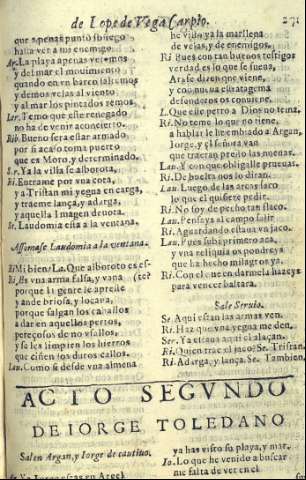 de Lope de Vega Carpio.
que apenas punto sosiego
hasta ver a mi enemigo.
Ar. La playa apenas vemos
y del mar el mouimiento
quando en vn barco saltemos
y demos velas al viento
y al mar los pintados remos
Lar. Temo que este renegado
no ha de venir a concierto.
Rib. Bueno sera estar armado
por si acaso toma puerto
que es Moro, y determinado.
Ser. Ya la villa se alborota,
Ri. Entrame por vna cota,
ya Tristan mi yegua en carga,
y traeme lança, y adarga,
y aquella Imagen deuota.
Sr. Laudomia està a la ventana.
Assomase Laudomia a la ventana.
Ri. Mi bien: La. Que alboroto es es-
Ri. Es vna arma falsa, y vana (te?
porque la gente se apreste
y ande briosa, y loçana,
porque salgan los caballos
a dar en aquellos puertos,
pereçosos de no vsallos,
y se les limpien los hierros
que ciñen los duros callos.
Lau. Como si desde vna almena
he visto ya la marlena
de velas, y de enemigos,
Ri. Pues con tan buenos testigos
verdad es lo que se suena,
Arse diren que viene,
y con nueua estratagema
defenderos os conuiene.
L. Que este perro a Dios no tema.
Ri. No teme lo que no tiene,
a hablar le he embiado a Argan,
Iorge, y el señura van
que tracten presto las nueuas.
Lau. A conque obligalle prueuas.
Ri. De huelta nos lo diran.
Lau. Luego de las arcas saco
lo que el quisere pedir.
Ri. No soy de pecho tan flaco.
Lau. Pensays al campo salir
Ri. Aguardando estaua va jaco.
Lau. Pues subi primero aca,
y vna reliquia os pondreys
que ha hecho milagros ya.
Ri. Con el que en darmela hazeys
para vencer bastara.
Sale Seruio.
Sr. Aqui estan las armas ven.
Ri. Haz que vna yegua me den.
Ser. Ya estaua aqui el alaçan.
Ri. Quien trae el jaco: Sr. Tristan.
Ri. Adarga, y lança Sr. Tambien
ACTO SEGVNDO
DE IORGE TOLEDANO
Salen Argan, y Iorge de cautiuo.
ya has visto su playa, y mar.
Io. Lo que he venido a buscar
me falta de ver en el